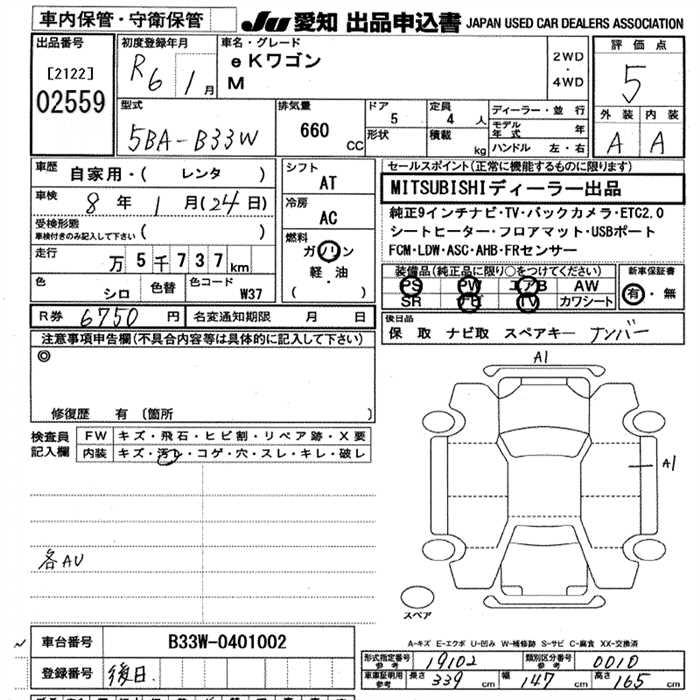 車内保管・守衛保管
JU 愛知 出品申込書 JAPAN USED CAR DEALERS ASSOCIATION
出品番号
[2122]
02559
初度登録年月
R6年 1月
車名・グレード
eKワゴン
M
2WD
・
4WD
評価点
5
外装 内装
A A
型式
5BA-B33W
排気量
660 CC
ドア
5
形状
定員
4 人
積載
kg
ディーラー・並行
モデル年式 年
ハンドル 左・右
車歴
自家用・( レンタ )
車検
8年 1月(24日)
受検形態
車検付きのみ記入して下さい ( )
走行
万5千737km
色
シロ
色替
色コード
W37
シフト
AT
冷房
AC
燃料
ガソリン
軽・油
( )
セールスポイント(正常に機能するものに限ります)
MITSUBISHIディーラー出品
純正9インチナビ・TV・バックカメラ・ETC2.0
シートヒーター・フロアマット・USBポート
FCM・LDW・ASC・AHB・FRセンサー
装備品(純正品に限り○をつけてください)
PS PW エアB AW
SR ナビ TV カワシート
新車保証書
有・無
R券 6750円 名変通知期限 月 日
後日品
保 取 ナビ取 スペアキー ナンバー
注意事項申告欄(不具合内容等は具体的に記入して下さい)
◎
修復歴 有 (箇所 )
検査員
記入欄
FW キズ・飛石・ヒビ割・リペア跡・X要
内装 キズ・汚レ・コゲ・穴・スレ・キレ・破レ
各AU
A1
A1
スペア
A-キズ E-エクボ U-凹み W-補修跡 S-サビ C-腐食 XX-交換済
車台番号 B33W-0401002
登録番号 後日
形式指定番号
参考
19102
類別区分番号
参考
0010
車庫証明用
参考
長さ 339cm 幅 147cm 高さ 165cm